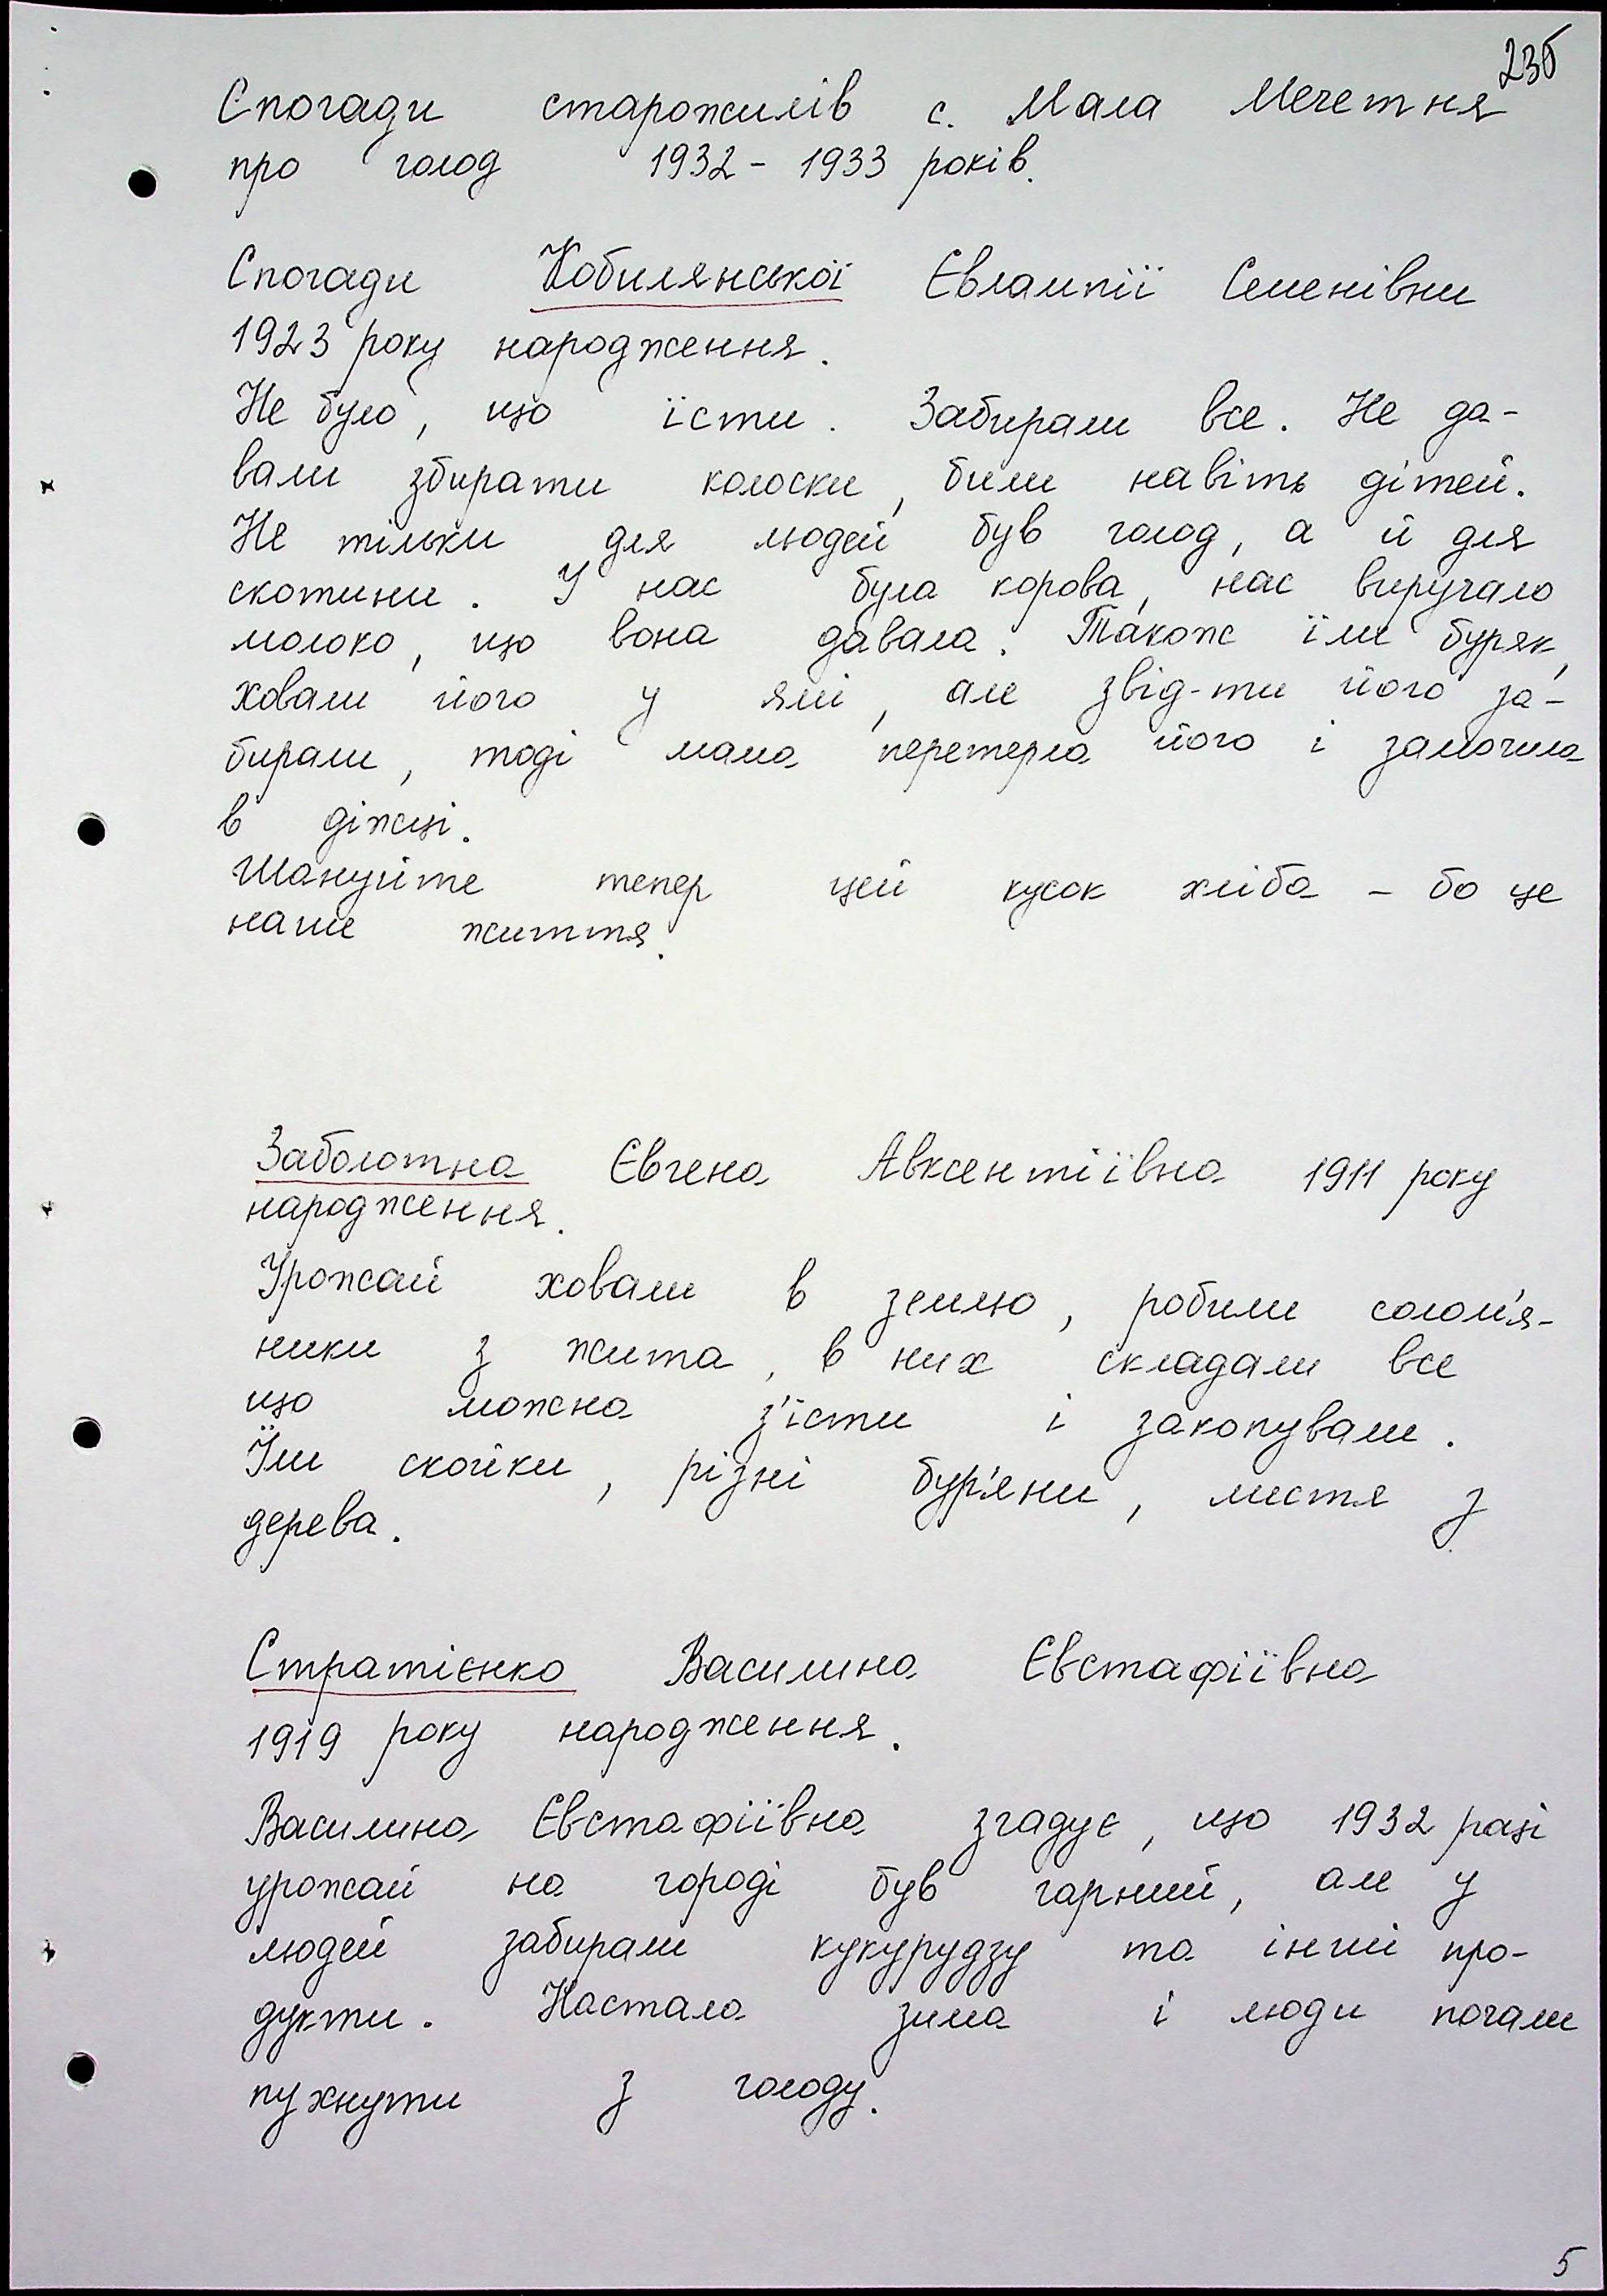 235
Спогади старожилів с. Мала Мечетня
про голод 1932 - 1933 років.
Спогади Кобилянської Євлампії Семенівни
1923 року народження.
Не було, що їсти. Забирали все. Не да-
вали збирати колоски, били навіть дітей.
Не тільки для людей був голод, а й для
скотини. У нас була корова, нас виручало
молоко, що вона давала. Також їли буряк,
ховали його у ямі, але звід-ти його за-
бирали, тоді мама перетерла його і замочила
в діжці.
Шануйте тепер цей кусок хліба - бо це
наше життя.
Заболотна Євгена Авксентіївна 1911 року
народження.
Урожай ховали в землю, робили солом'я-
ники з жита, в них складали все
що можна з'їсти і закопували.
Їли скойки, різні бур'яни, листя з
дерева.
Стратієнко Василина Євстафіївна
1919 року народження.
Василина Євстафіївна згадує, що 1932 році
урожай на городі був гарний, але у
людей забирали кукурудзу та інші про-
дукти. Настала зима і люди почали
пухнути з голоду.
5